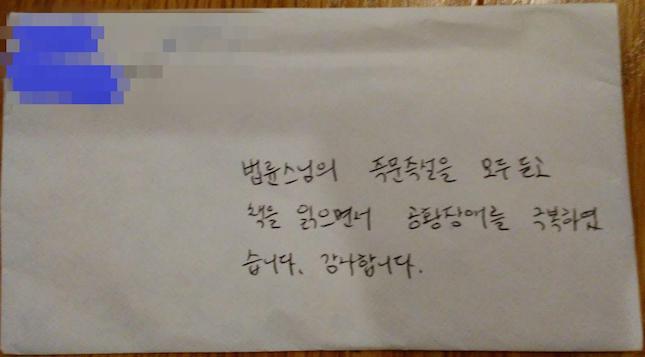 법륜스님의 즉문즉설을 모두 듣고
책을 읽으면서 공황장애를 극복하였
습니다. 감사합니다.